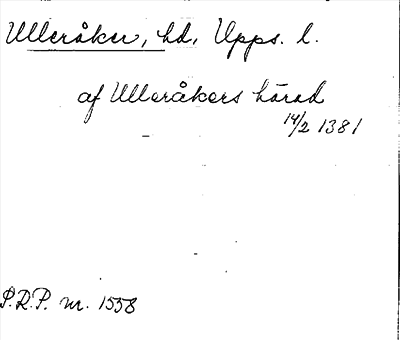 Ulleråker, hd, Upps. l.
af Ulleråkers härad
14/2 1381
P.R.P. nr. 1558